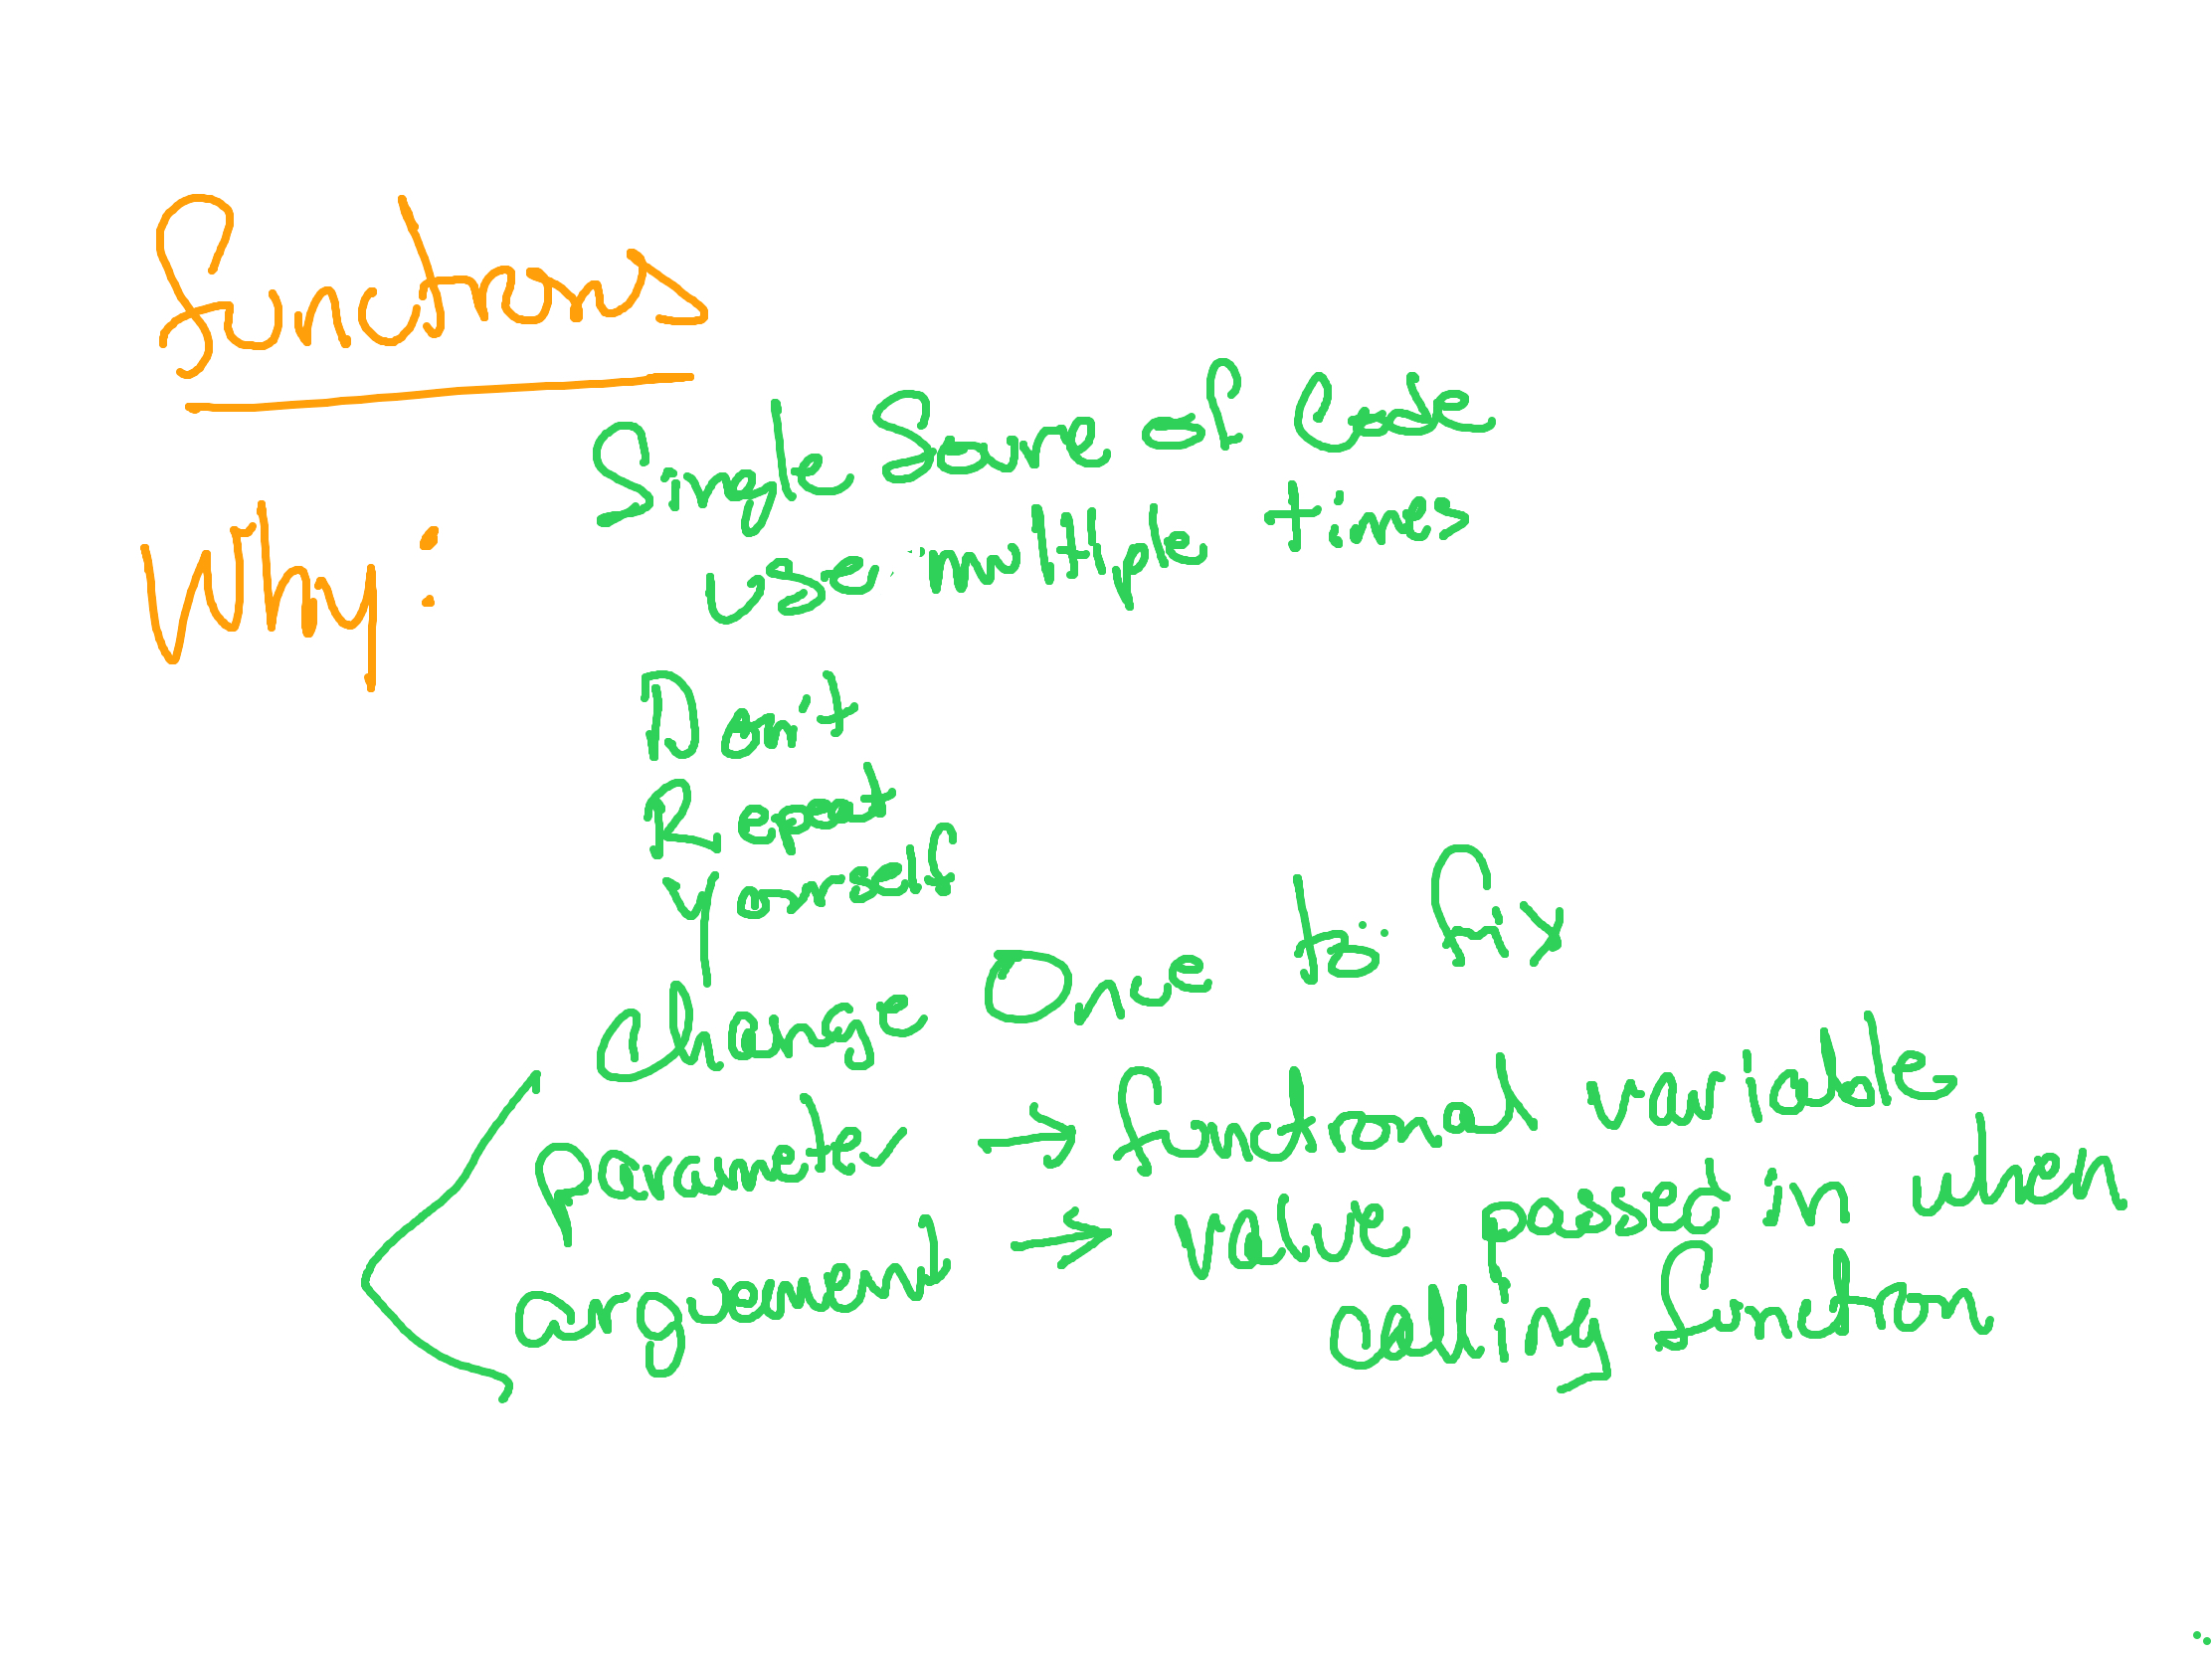 Functions
Why:
Single Source of Code
use multiple times
Don't
Repeat
Yourself
Change Once to fix
Parameter → functional variable
arguement → value passed in when
calling function